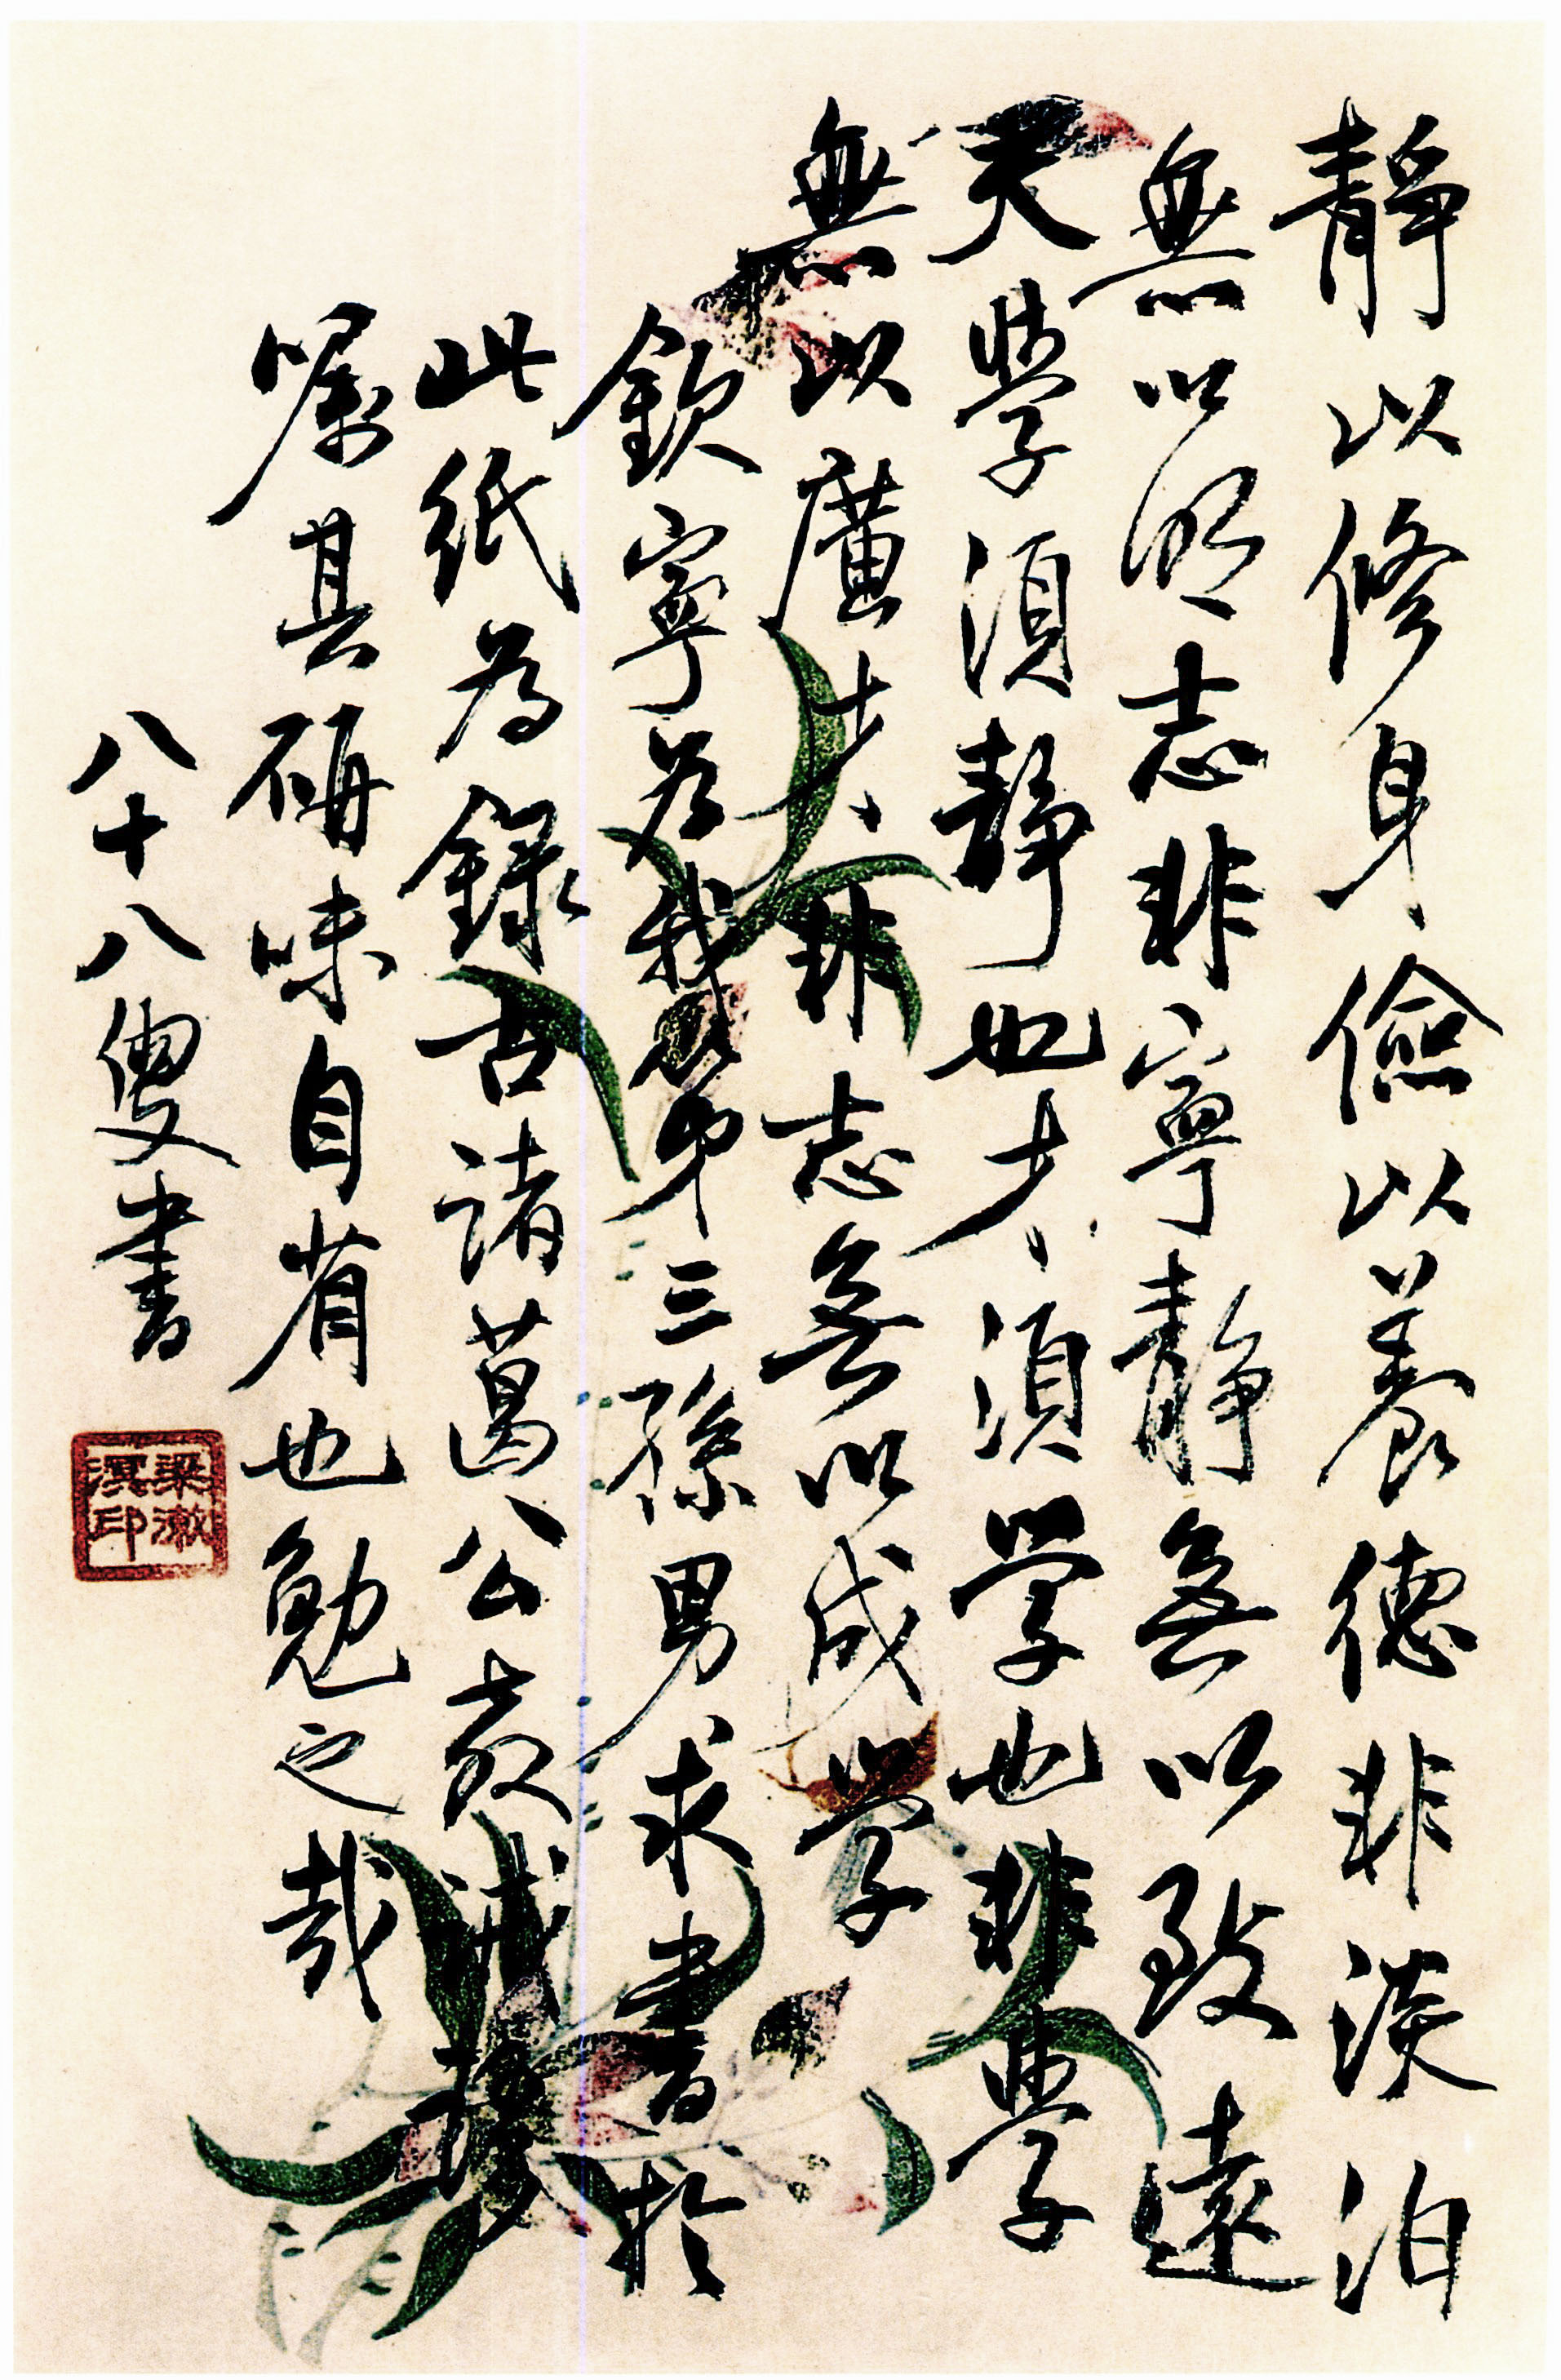 靜以修身儉以養德非淡泊
無以明志非寧靜無以致遠
夫學須靜也才須学也非學
無以廣才非志無以成学
欽寧为我第三孫男求書於
此紙为錄古諸葛公教誡
嘱其研味自省也勉之哉
八十八叟書
梁漱
溟印